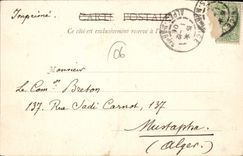 Imprimé
CARTE POSTALE
Ce côté est exclusivement réservé à l'
06
Monsieur
Le Com^t Breton
137, Rue Sadi Carnot, 137
Mustapha.
(Alger)